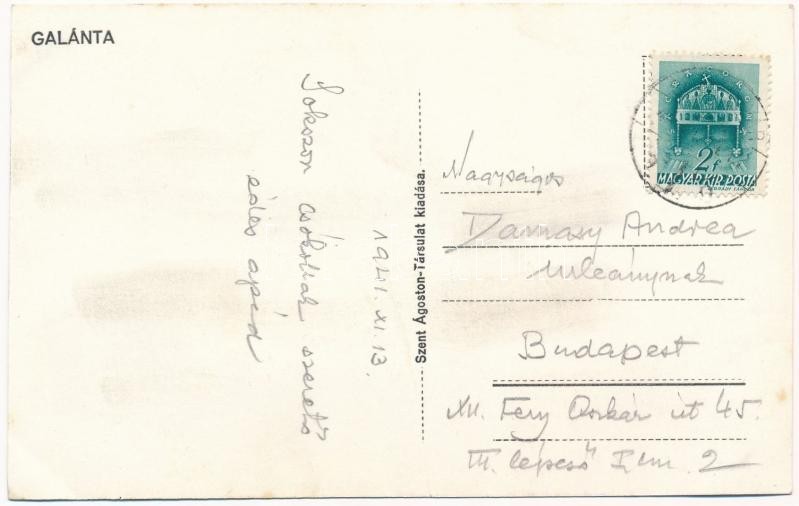 GALÁNTA
1941. XI. 13.
Sokszor csókollak szerető
édes apád
Szent Ágoston-Társulat kiadása.
SACRA CORONA
2f
MAGYAR KIR. POSTA
Nagyságos
Andrea
urleánynak
Budapest
XII. Fery Oszkár út 45.
III. lépcső I. em. 2